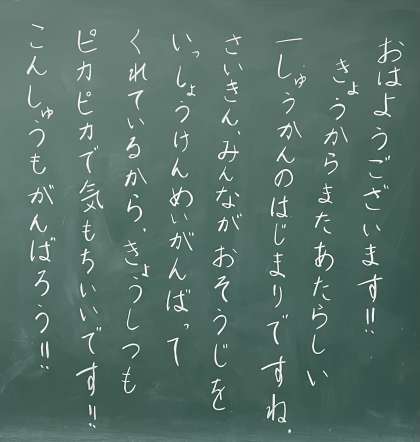 おはようございます!!
きょうからまたあたらしい
一しゅうかんのはじまりですね。
さいきん、みんながおそうじを
いっしょうけんめいがんばって
くれているから、きょうしつも
ピカピカで気もちいいです!!
こんしゅうもがんばろう!!